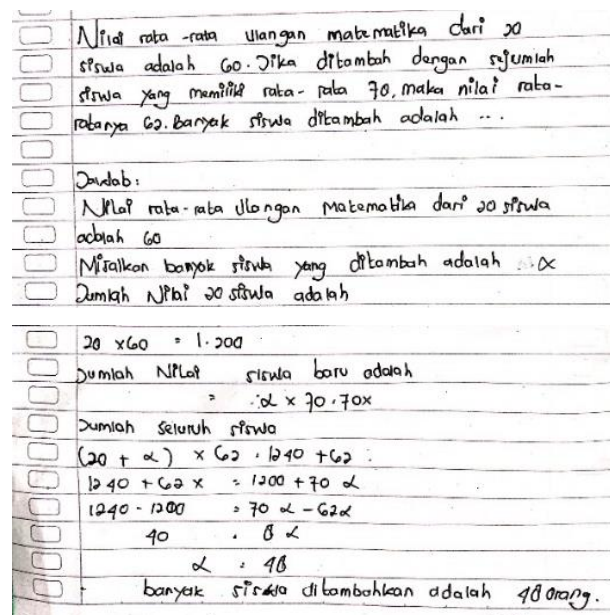 Nilai rata-rata ulangan matematika dari 20
siswa adalah 60. Jika ditambah dengan sejumlah
siswa yang memiliki rata-rata 70, maka nilai rata-
ratanya 62. Banyak siswa ditambah adalah ...
Jawab:
Nilai rata-rata ulangan Matematika dari 20 siswa
adalah 60
Misalkan banyak siswa yang ditambah adalah x
Jumlah Nilai 20 siswa adalah
20 x 60 = 1.200
Jumlah Nilai siswa baru adalah
= x × 70 . 70x
Jumlah seluruh siswa
(20 + x) × 62 = 1240 + 62
1240 + 62 x = 1200 + 70 x
1240 - 1200 = 70 x - 62x
40 = 8 x
x = 48
banyak siswa ditambahkan adalah 48 orang.